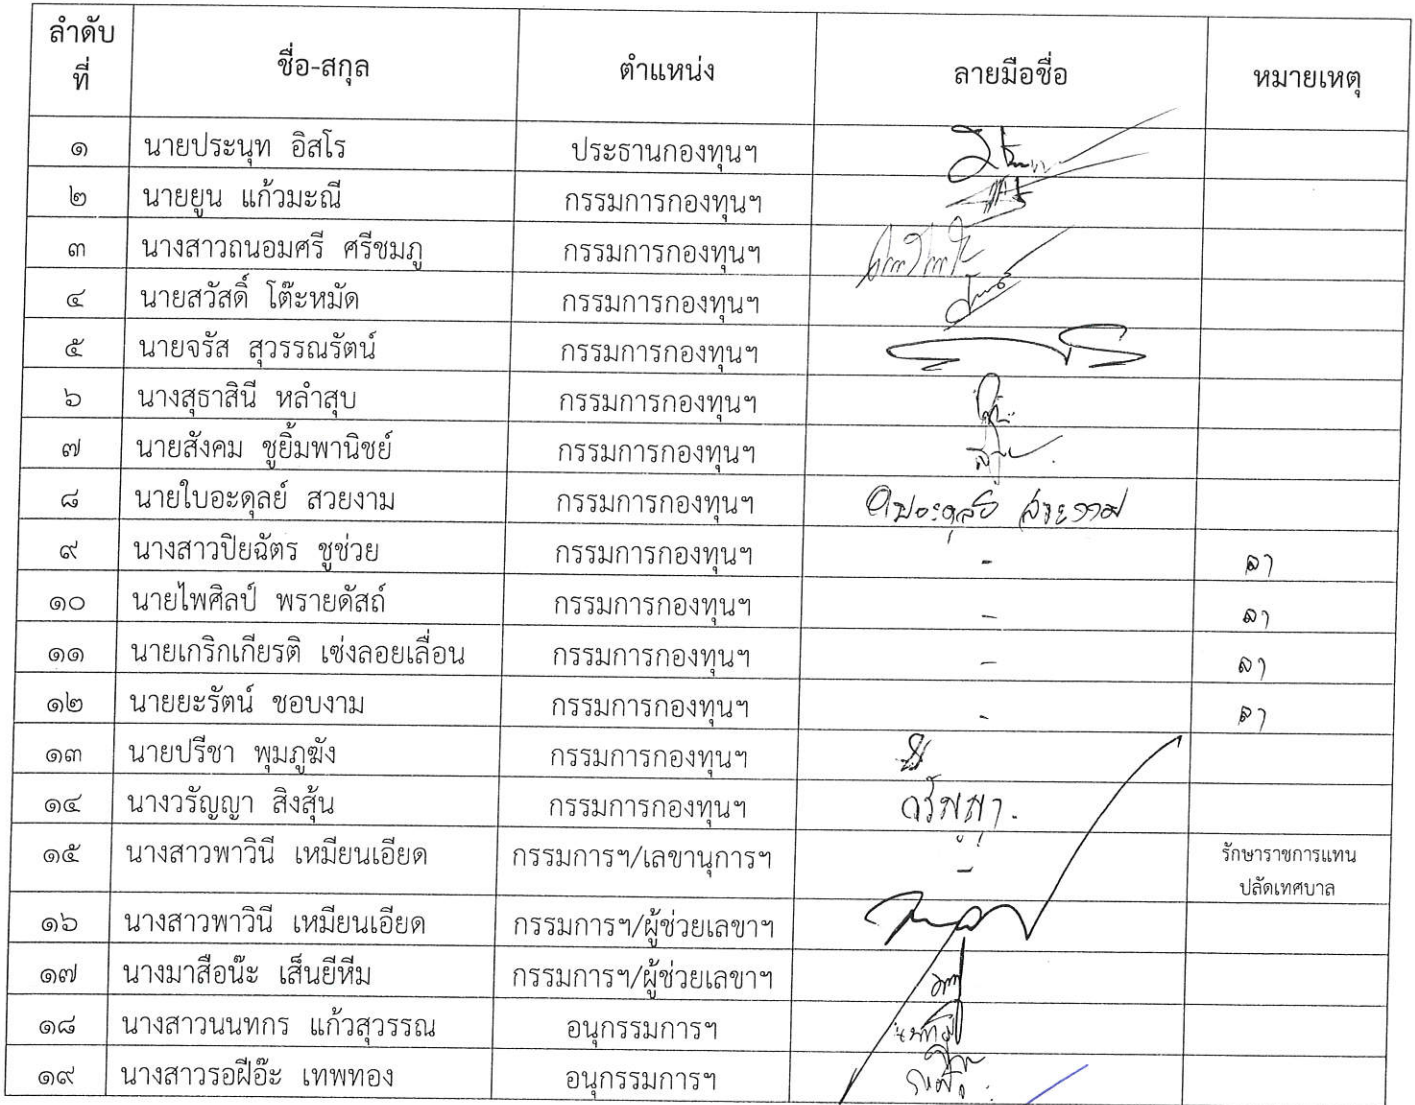 ลำดับที่ ชื่อ-สกุล ตำแหน่ง ลายมือชื่อ หมายเหตุ
๑ นายประนุท อิสโร ประธานกองทุนฯ
๒ นายยูน แก้วมะณี กรรมการกองทุนฯ
๓ นางสาวถนอมศรี ศรีชมภู กรรมการกองทุนฯ
๔ นายสวัสดิ์ โต๊ะหมัด กรรมการกองทุนฯ
๕ นายจรัส สุวรรณรัตน์ กรรมการกองทุนฯ
๖ นางสุธาสินี หลำสุบ กรรมการกองทุนฯ
๗ นายสังคม ชูยิ้มพานิชย์ กรรมการกองทุนฯ
๘ นายใบอะดุลย์ สวยงาม กรรมการกองทุนฯ ใบอะดุลย์ สวยงาม
๙ นางสาวปิยฉัตร ชูช่วย กรรมการกองทุนฯ - ลา
๑๐ นายไพศิลป์ พรายดัสถ์ กรรมการกองทุนฯ - ลา
๑๑ นายเกริกเกียรติ เซ่งลอยเลื่อน กรรมการกองทุนฯ - ลา
๑๒ นายยะรัตน์ ชอบงาม กรรมการกองทุนฯ - ลา
๑๓ นายปรีชา พุมภูฆัง กรรมการกองทุนฯ
๑๔ นางวรัญญา สิงสุ้น กรรมการกองทุนฯ วรัญญา.
๑๕ นางสาวพาวินี เหมียนเอียด กรรมการฯ/เลขานุการฯ - รักษาราชการแทน
ปลัดเทศบาล
๑๖ นางสาวพาวินี เหมียนเอียด กรรมการฯ/ผู้ช่วยเลขาฯ
๑๗ นางมาสือน๊ะ เส็นยีหีม กรรมการฯ/ผู้ช่วยเลขาฯ
๑๘ นางสาวนนทกร แก้วสุวรรณ อนุกรรมการฯ
๑๙ นางสาวรอฝีอ๊ะ เทพทอง อนุกรรมการฯ